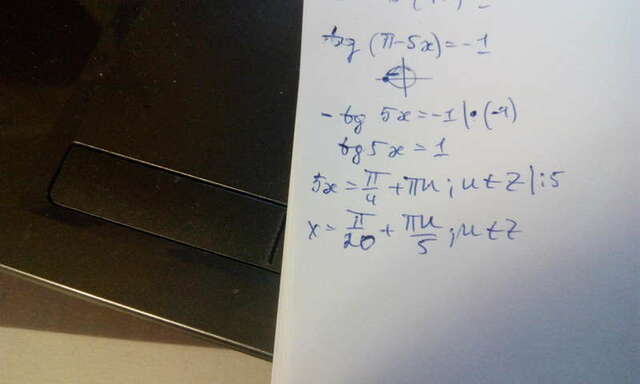 tg (π-5x)=-1
-tg 5x=-1|·(-1)
tg5x=1
5x=π/4+πn; n∈Z|:5
x=π/20+πn/5; n∈Z